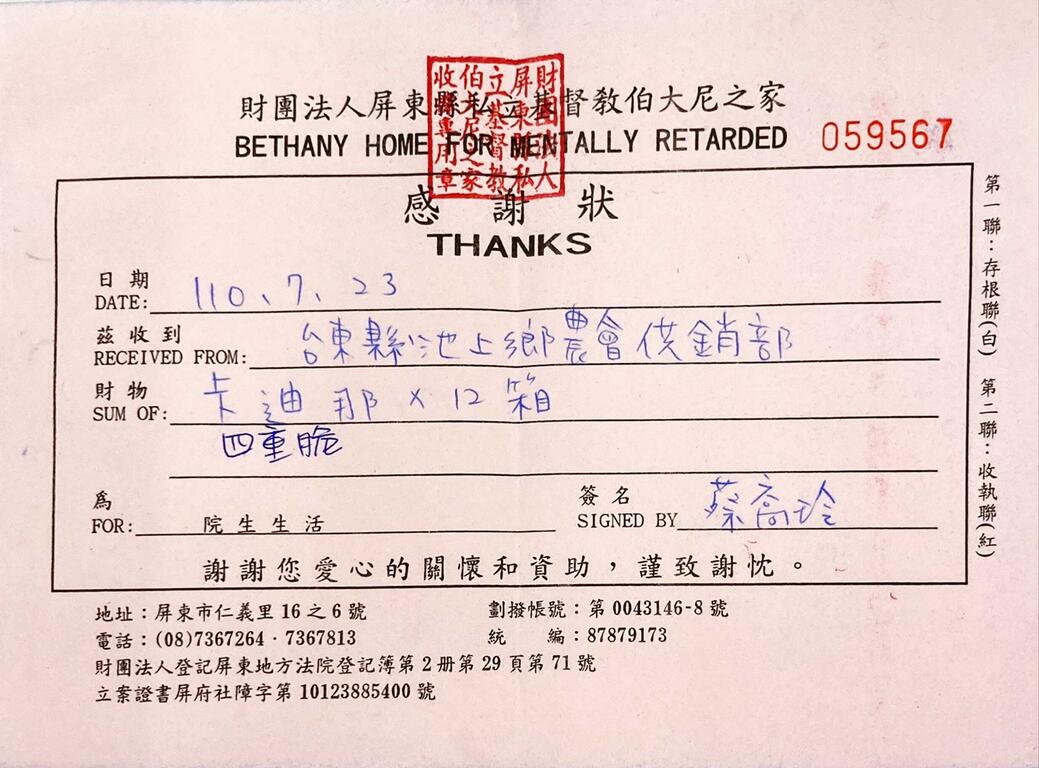 財團法人屏東縣私立基督教伯大尼之家
BETHANY HOME FOR MENTALLY RETARDED
059567
財團法人
屏東縣私
立基督教
伯大尼之家
收據專用章
感謝狀
THANKS
日期
DATE: 110、7、23
茲收到
RECEIVED FROM: 台東縣池上鄉農會供銷部
財物
SUM OF: 卡迪那 x 12 箱
四重脆
為
FOR: 院生生活
簽名
SIGNED BY 蔡喬玲
謝謝您愛心的關懷和資助，謹致謝忱。
第一聯：存根聯(白) 第二聯：收執聯(紅)
地址：屏東市仁義里16之6號
劃撥帳號：第0043146-8號
電話：(08)7367264．7367813
統 編：87879173
財團法人登記屏東地方法院登記簿第2册第29頁第71號
立案證書屏府社障字第10123885400號